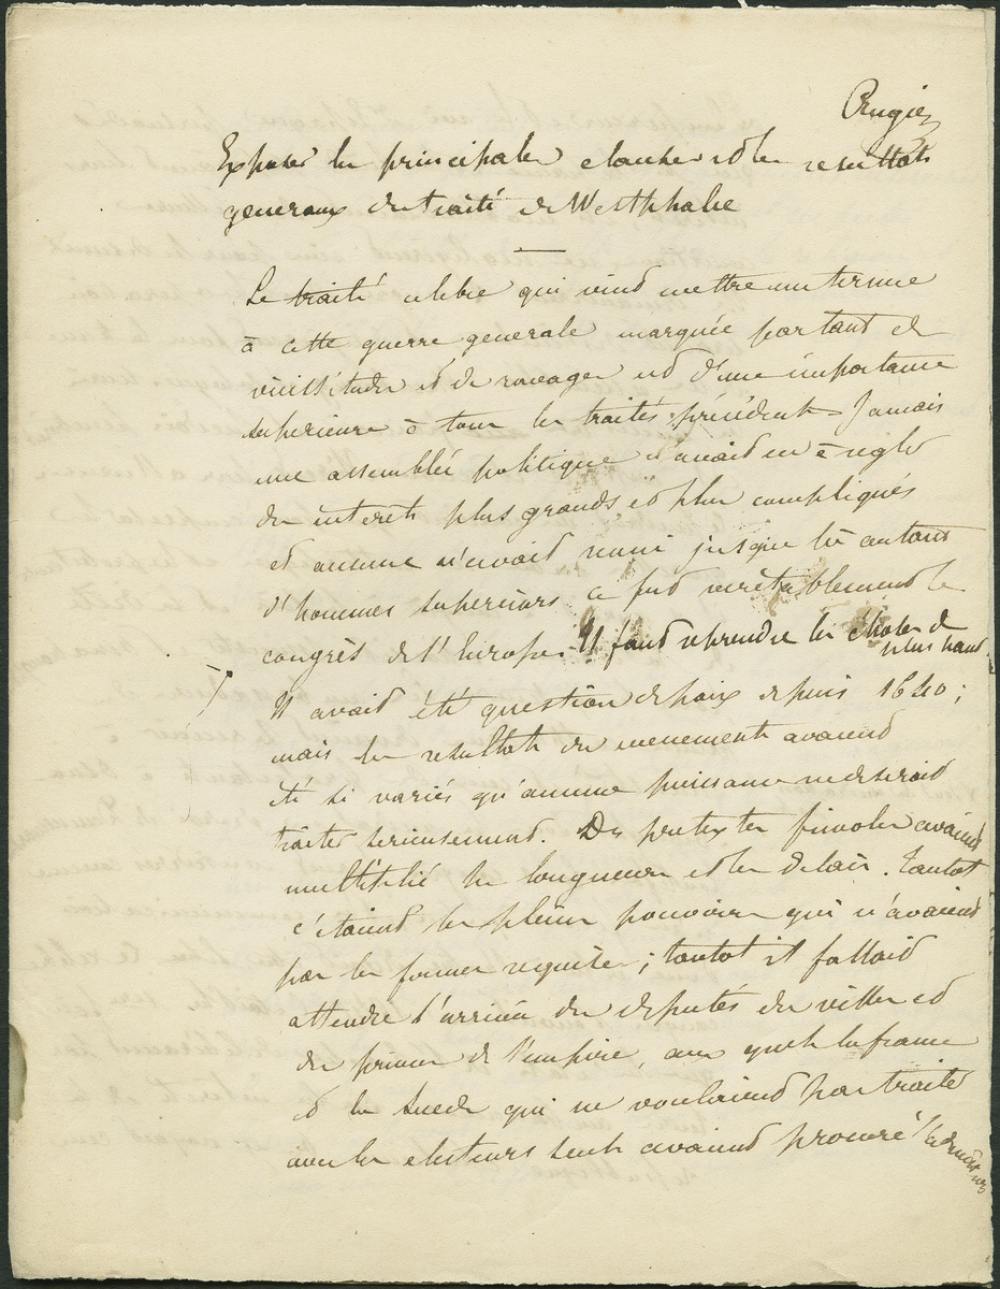 Exposer les principales clauses et les resultats
generaux du traité de Westphalie
Le traité celebre qui vint mettre un terme
à cette guerre generale marquée par tant de
vicissitudes et de ravages est d'une importance
superieure à tous les traités précédents. Jamais
une assemblée politique n'avait eu à regler
des interets plus grands et plus compliqués
et aucune n'avait reuni jusque là autant
d'hommes superieurs ce fut veritablement le
congrès de l'Europe. Il faut reprendre les choses de
plus haut.
Il avait été question de paix depuis 1640 ;
mais les resultats des evenements avaient
été si variés qu'aucune puissance ne desirait
traiter serieusement. Des pretextes frivoles avaient
multiplié les longueurs et les delais. Tantot
c'étaient les pleins pouvoirs qui n'avaient
pas les formes requises ; tantot il fallait
attendre l'arrivée des deputés des villes et
des princes de l'empire, aux quels la france
et la Suede qui ne voulaient pas traiter
avec les electeurs seuls avaient procuré l'admission